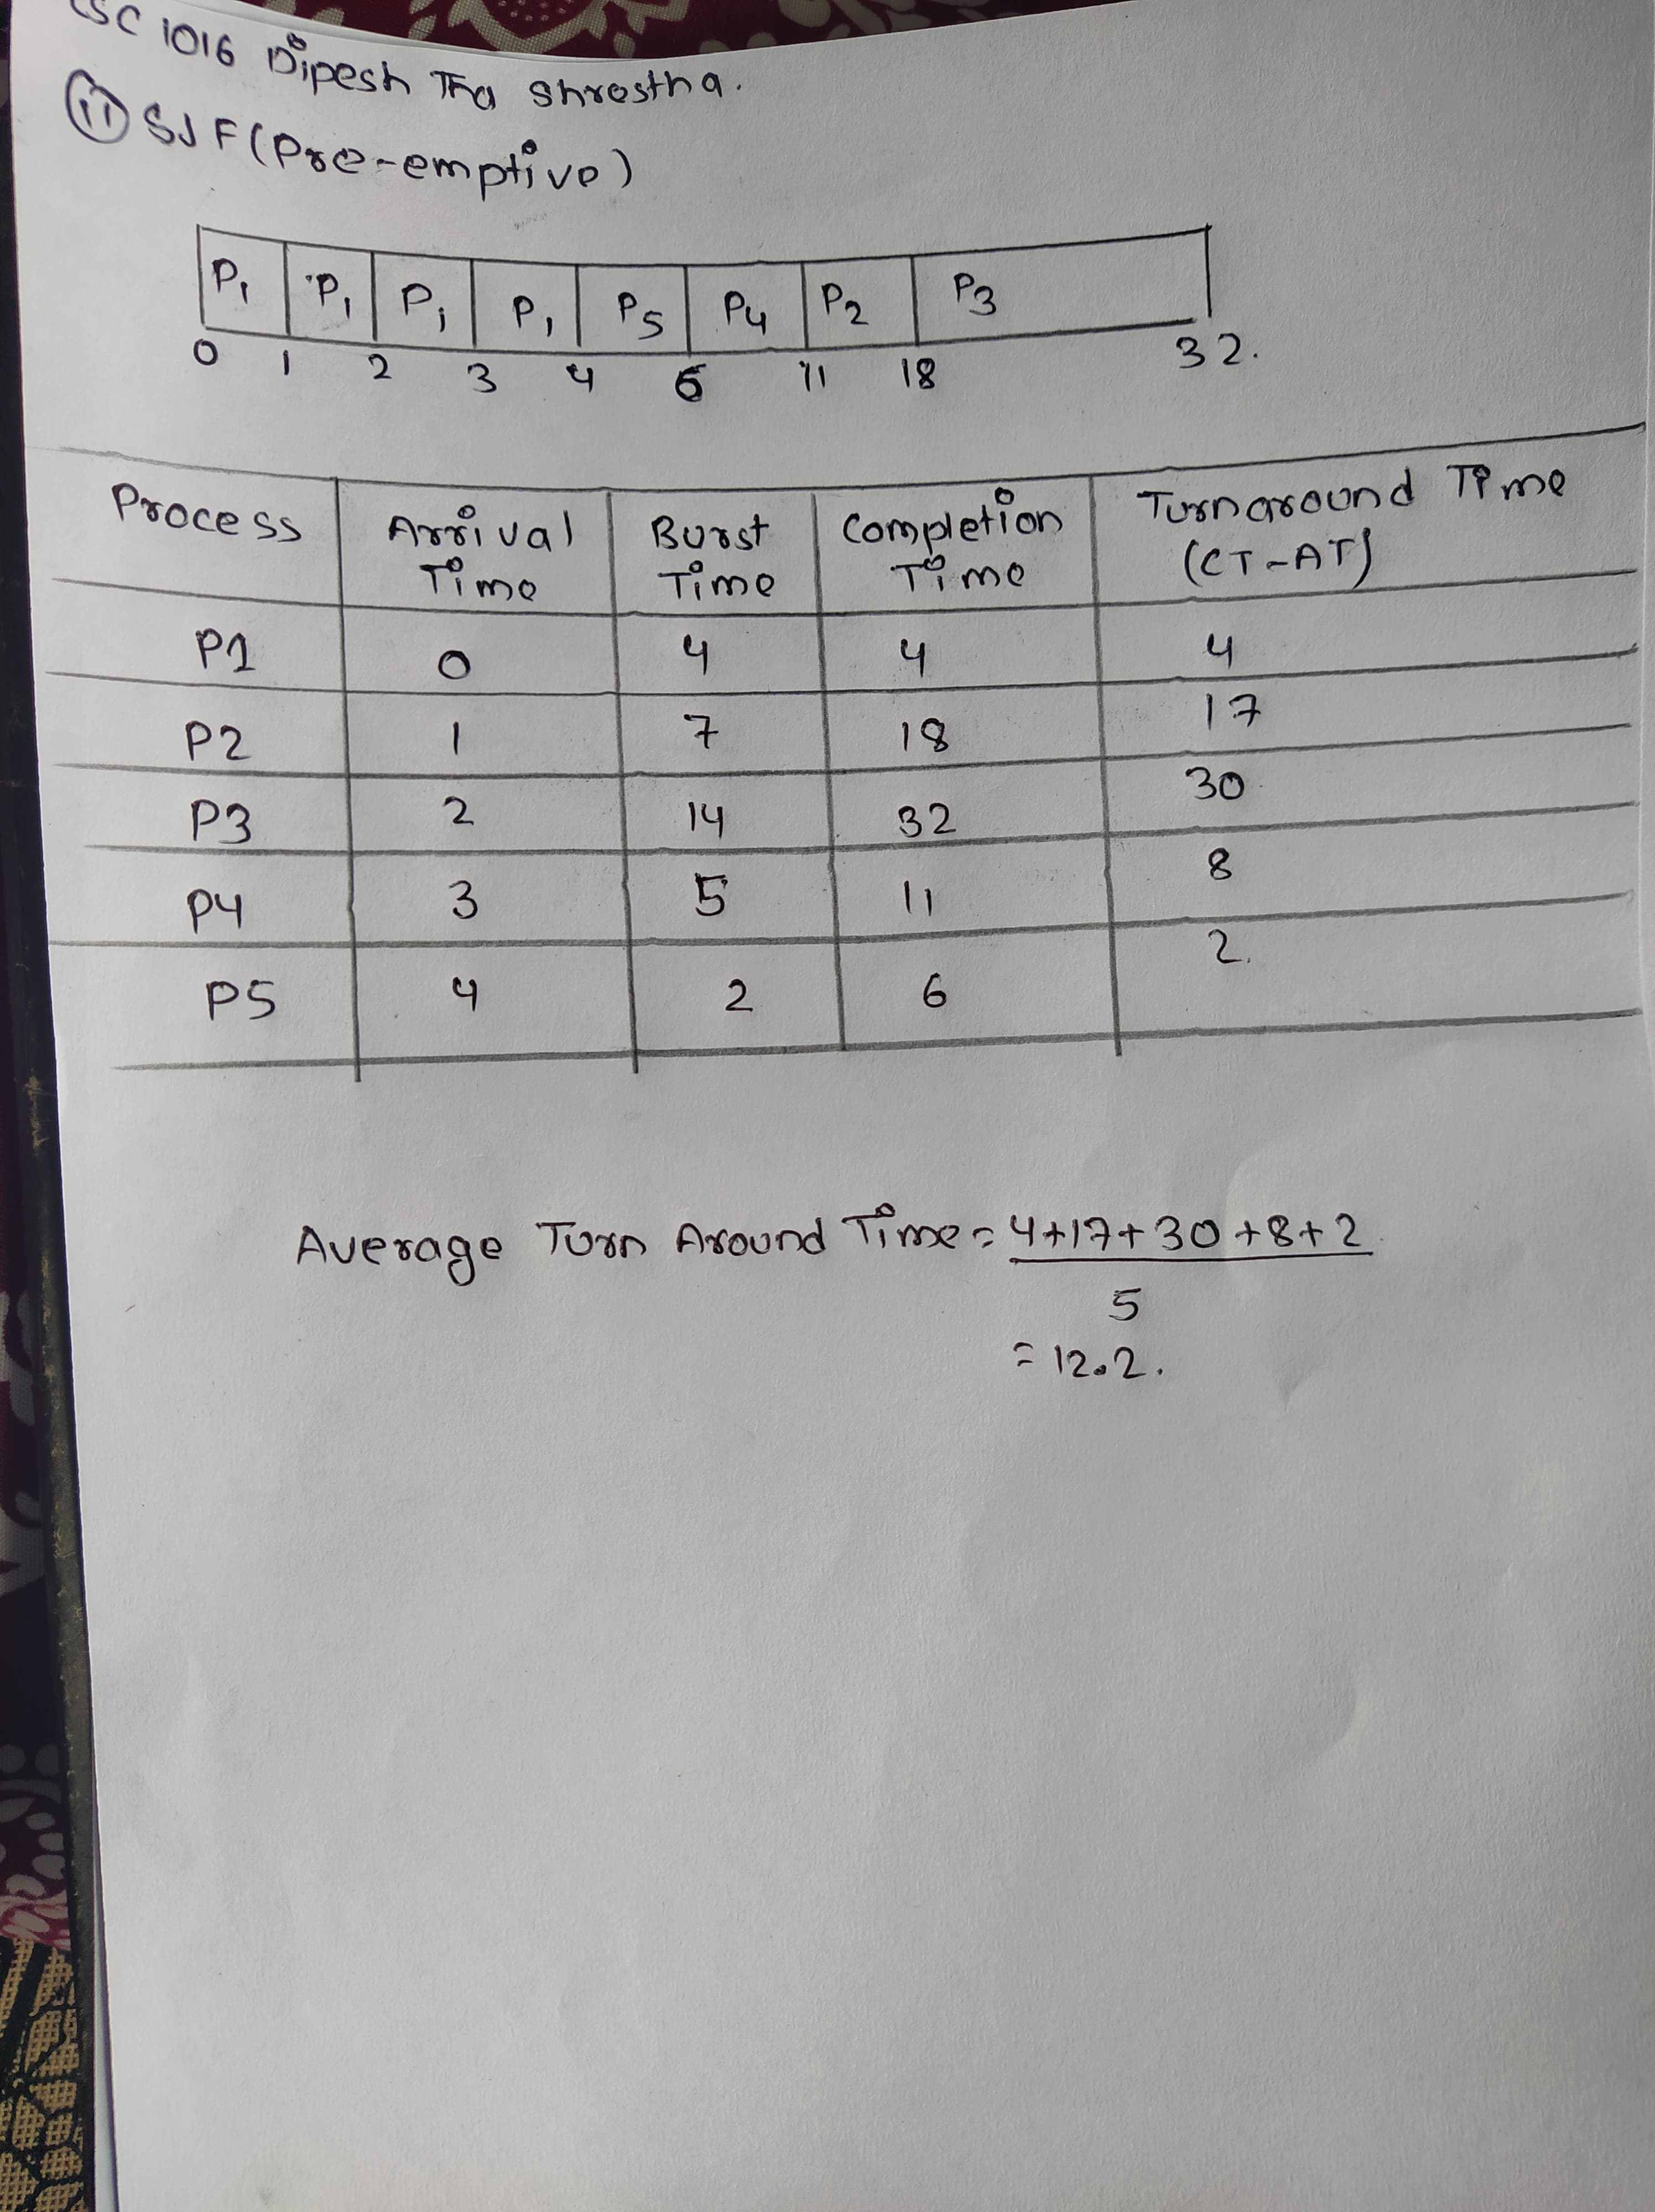 CSC 1016 Dipesh Tha Shrestha.
(ii) SJF (Pre-emptive)
P1 P1 P1 P1 P5 P4 P2 P3
0 1 2 3 4 6 11 18 32.
Process Arrival Time Burst Time Completion Time Turnaround Time (CT-AT)
P1 0 4 4 4
P2 1 7 18 17
P3 2 14 32 30
P4 3 5 11 8
P5 4 2 6 2.
Average Turn Around Time = 4+17+30+8+2
5
= 12.2.